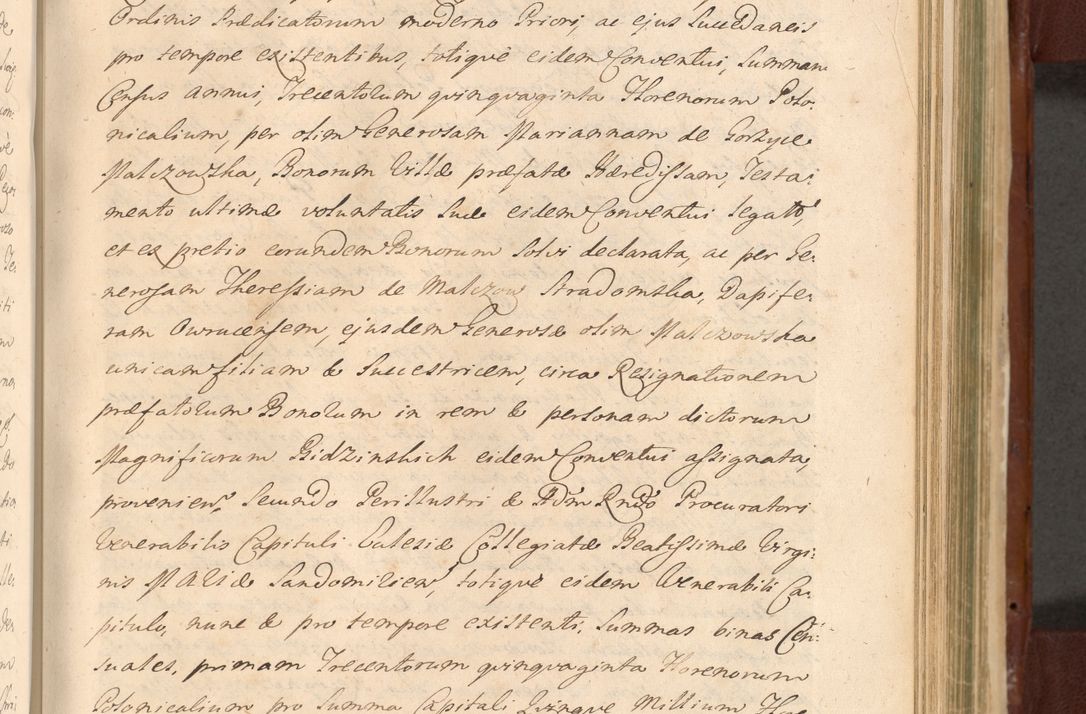 Ordinis Prædicatorum moderno Priori, ac ejus Succedaneis
pro tempore existentibus, totiquè eidem Conventui, Summam
Census annui, Trecentorum quinquaginta Florenorum Polo-
nicalium, per olim Generosam Mariannam de Gorzyce
Malczowska, Bonorum Villæ præfatæ Hæredissam, Testa-
mento ultimæ voluntatis suæ eidem Conventui legato,
et ex pretio eorundem Bonorum solvi declarata, ac per Ge-
nerosam Theressiam de Malczow Stradomska, Dapife-
ram Owrucensem, ejusdem Generosæ olim Malczowska
unicam filiam & Successricem, circa Resignationem
præfatorum Bonorum in rem & personam dictorum
Magnificorum Bidzinskich eidem Conventui assignata,
provenien. Secundo Perillustri & Adm Rndo Procuratori
Venerabilis Capituli Eclesiæ Collegiatæ Beatissimæ Virgi-
nis MARIÆ Sandomirien, totiquè eidem Venerabili Ca-
pitulo, nunc & pro tempore existenti, Summas binas Cen-
suales, primam Trecentorum quinquaginta Florenorum
Polonicalium pro Summa Capitali Quinque Millium Flor